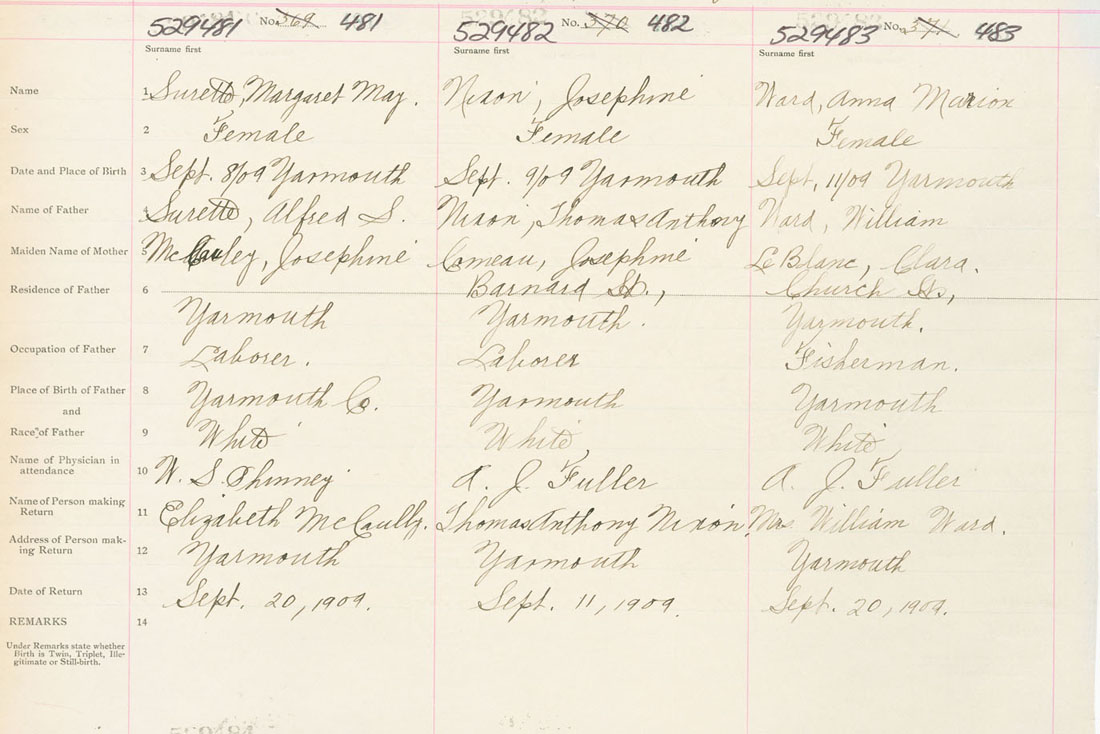 529481 No. 369 481 529482 No. 370 482 529483 No. 371 483
Surname first Surname first Surname first
Name 1 Surette, Margaret May. Nixon, Josephine Ward, Anna Marion
Sex 2 Female Female Female
Date and Place of Birth 3 Sept. 8/09 Yarmouth Sept. 9/09 Yarmouth Sept, 11/09 Yarmouth
Name of Father 4 Surette, Alfred S. Nixon, Thomas Anthony Ward, William
Maiden Name of Mother 5 McCauley, Josephine Comeau, Josephine Le Blanc, Clara.
Residence of Father 6 Barnard St., Church St.,
Yarmouth Yarmouth. Yarmouth.
Occupation of Father 7 Laborer. Laborer Fisherman.
Place of Birth of Father 8 Yarmouth Co. Yarmouth Yarmouth
and
Race of Father 9 White White White
Name of Physician in
attendance 10 W. S. Phinney A. J. Fuller A. J. Fuller
Name of Person making
Return 11 Elizabeth McCaully. Thomas Anthony Nixon, Mrs. William Ward.
Address of Person mak-
ing Return 12 Yarmouth Yarmouth Yarmouth
Date of Return 13 Sept. 20, 1909. Sept. 11, 1909. Sept. 20, 1909.
REMARKS 14
Under Remarks state whether
Birth is Twin, Triplet, Ille-
gitimate or Still-birth.